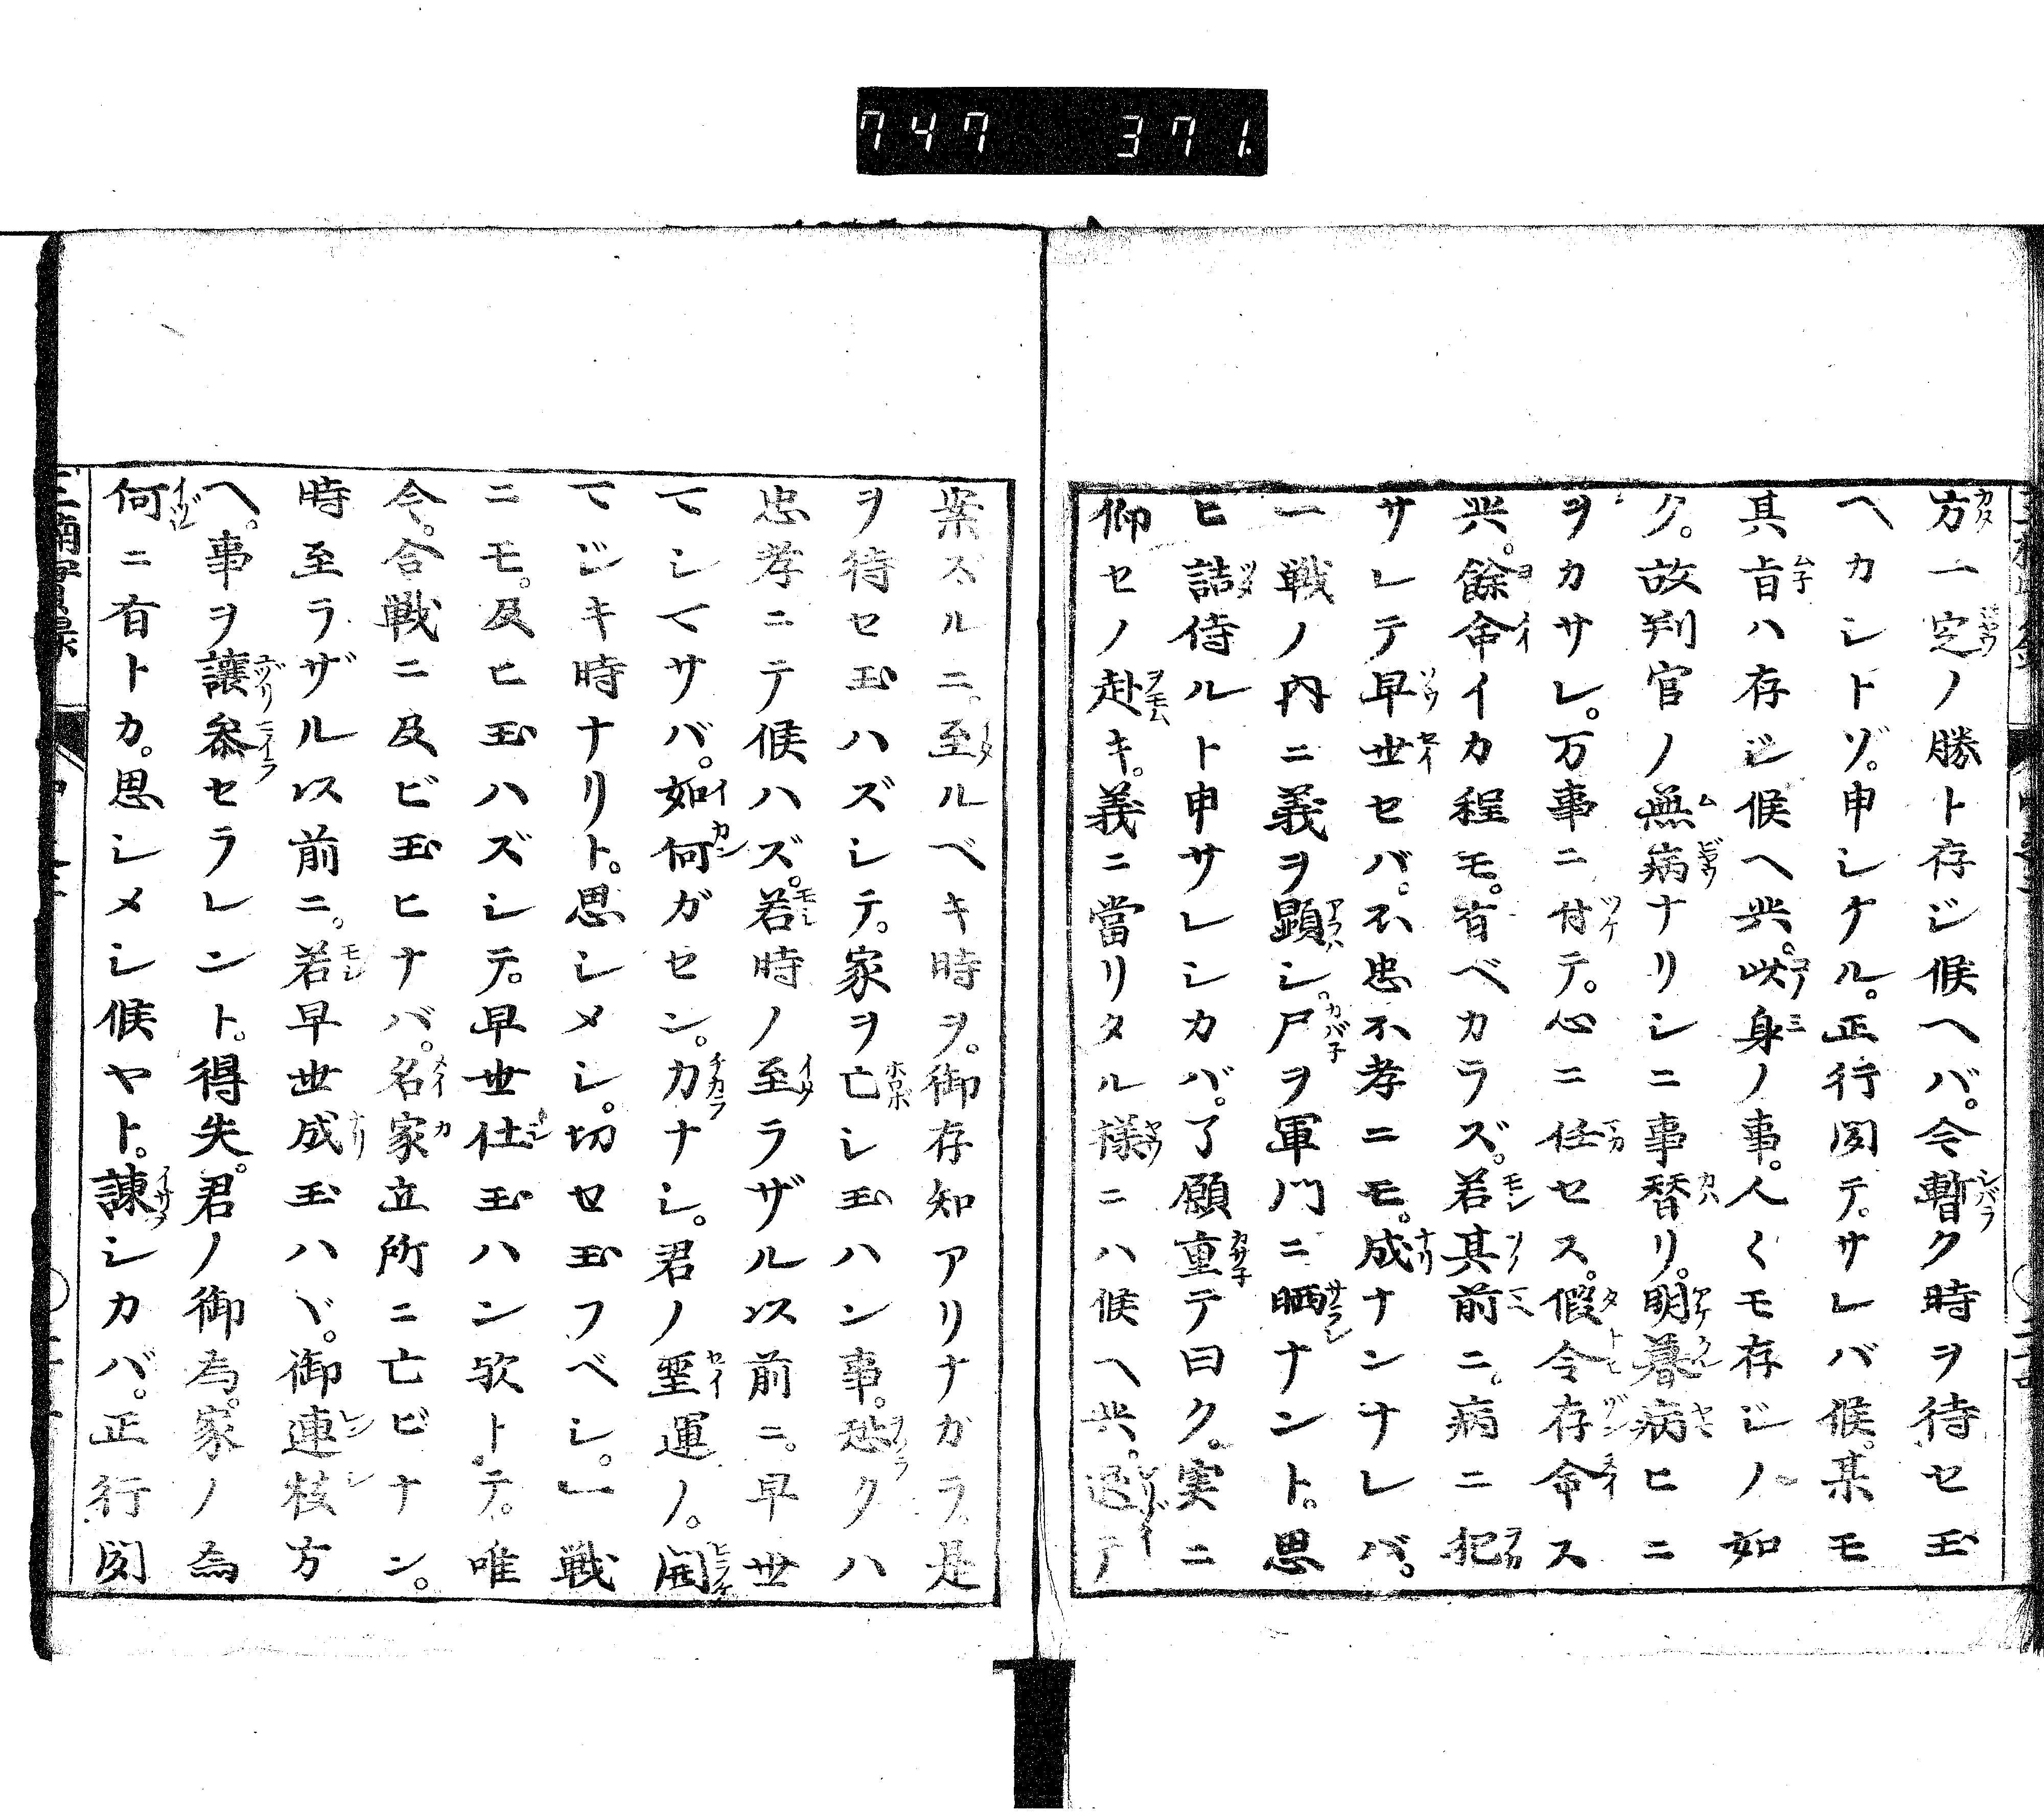 747 371.
方一定ノ勝ト存ジ候ヘバ。今暫ク時ヲ待セ玉
ヘカシトゾ。申シケル。正行聞テ。サレバ候。某モ
其旨ハ存ジ候ヘ共。此身ノ事。人〱モ存ジノ如
ク。故判官ノ無病ナリシニ事替リ。明暮病ヒニ
ヲカサレ。万事ニ付テ。心ニ任セス。假令存命ス
共。餘命イカ程モ。有ベカラズ。若其前ニ。病ニ犯
サレテ早世セバ。不忠不孝ニモ。成ナンナレバ。
一戦ノ内ニ義ヲ顕シ。尸ヲ軍門ニ晒ナント。思
ヒ詰侍ルト申サレシカバ。了願重テ曰ク。実ニ
仰セノ赴キ。義ニ當リタル様ニハ候ヘ共。退テ
案ズルニ。至ルベキ時ヲ。御存知アリナガラ。是
ヲ待セ玉ハズシテ。家ヲ亡シ玉ハン事。恐クハ
忠孝ニテ候ハズ。若時ノ至ラザル以前ニ。早世
マシマサバ。如何ガセン。力ナシ。君ノ聖運ノ。開
マジキ時ナリト。思シメシ。切セ玉フベシ。一戦
ニモ。及ヒ玉ハズシテ。早世仕玉ハン歟トテ。唯
今。合戦ニ及ビ玉ヒナバ。名家立所ニ亡ビナン。
時至ラザル以前ニ。若早世成玉ハヾ。御連枝方
ヘ。事ヲ譲参セラレント。得失。君ノ御為。家ノ為
何ニ有トカ。思シメシ候ヤト。諌シカバ。正行聞